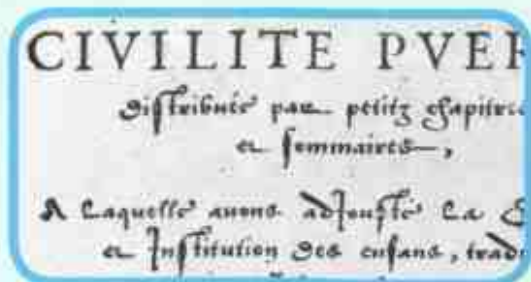 CIVILITE PVER
distribuée par petitz chapitres
et sommaires,
A Laquelle auons adjousté La
et Institution des enfans, trad